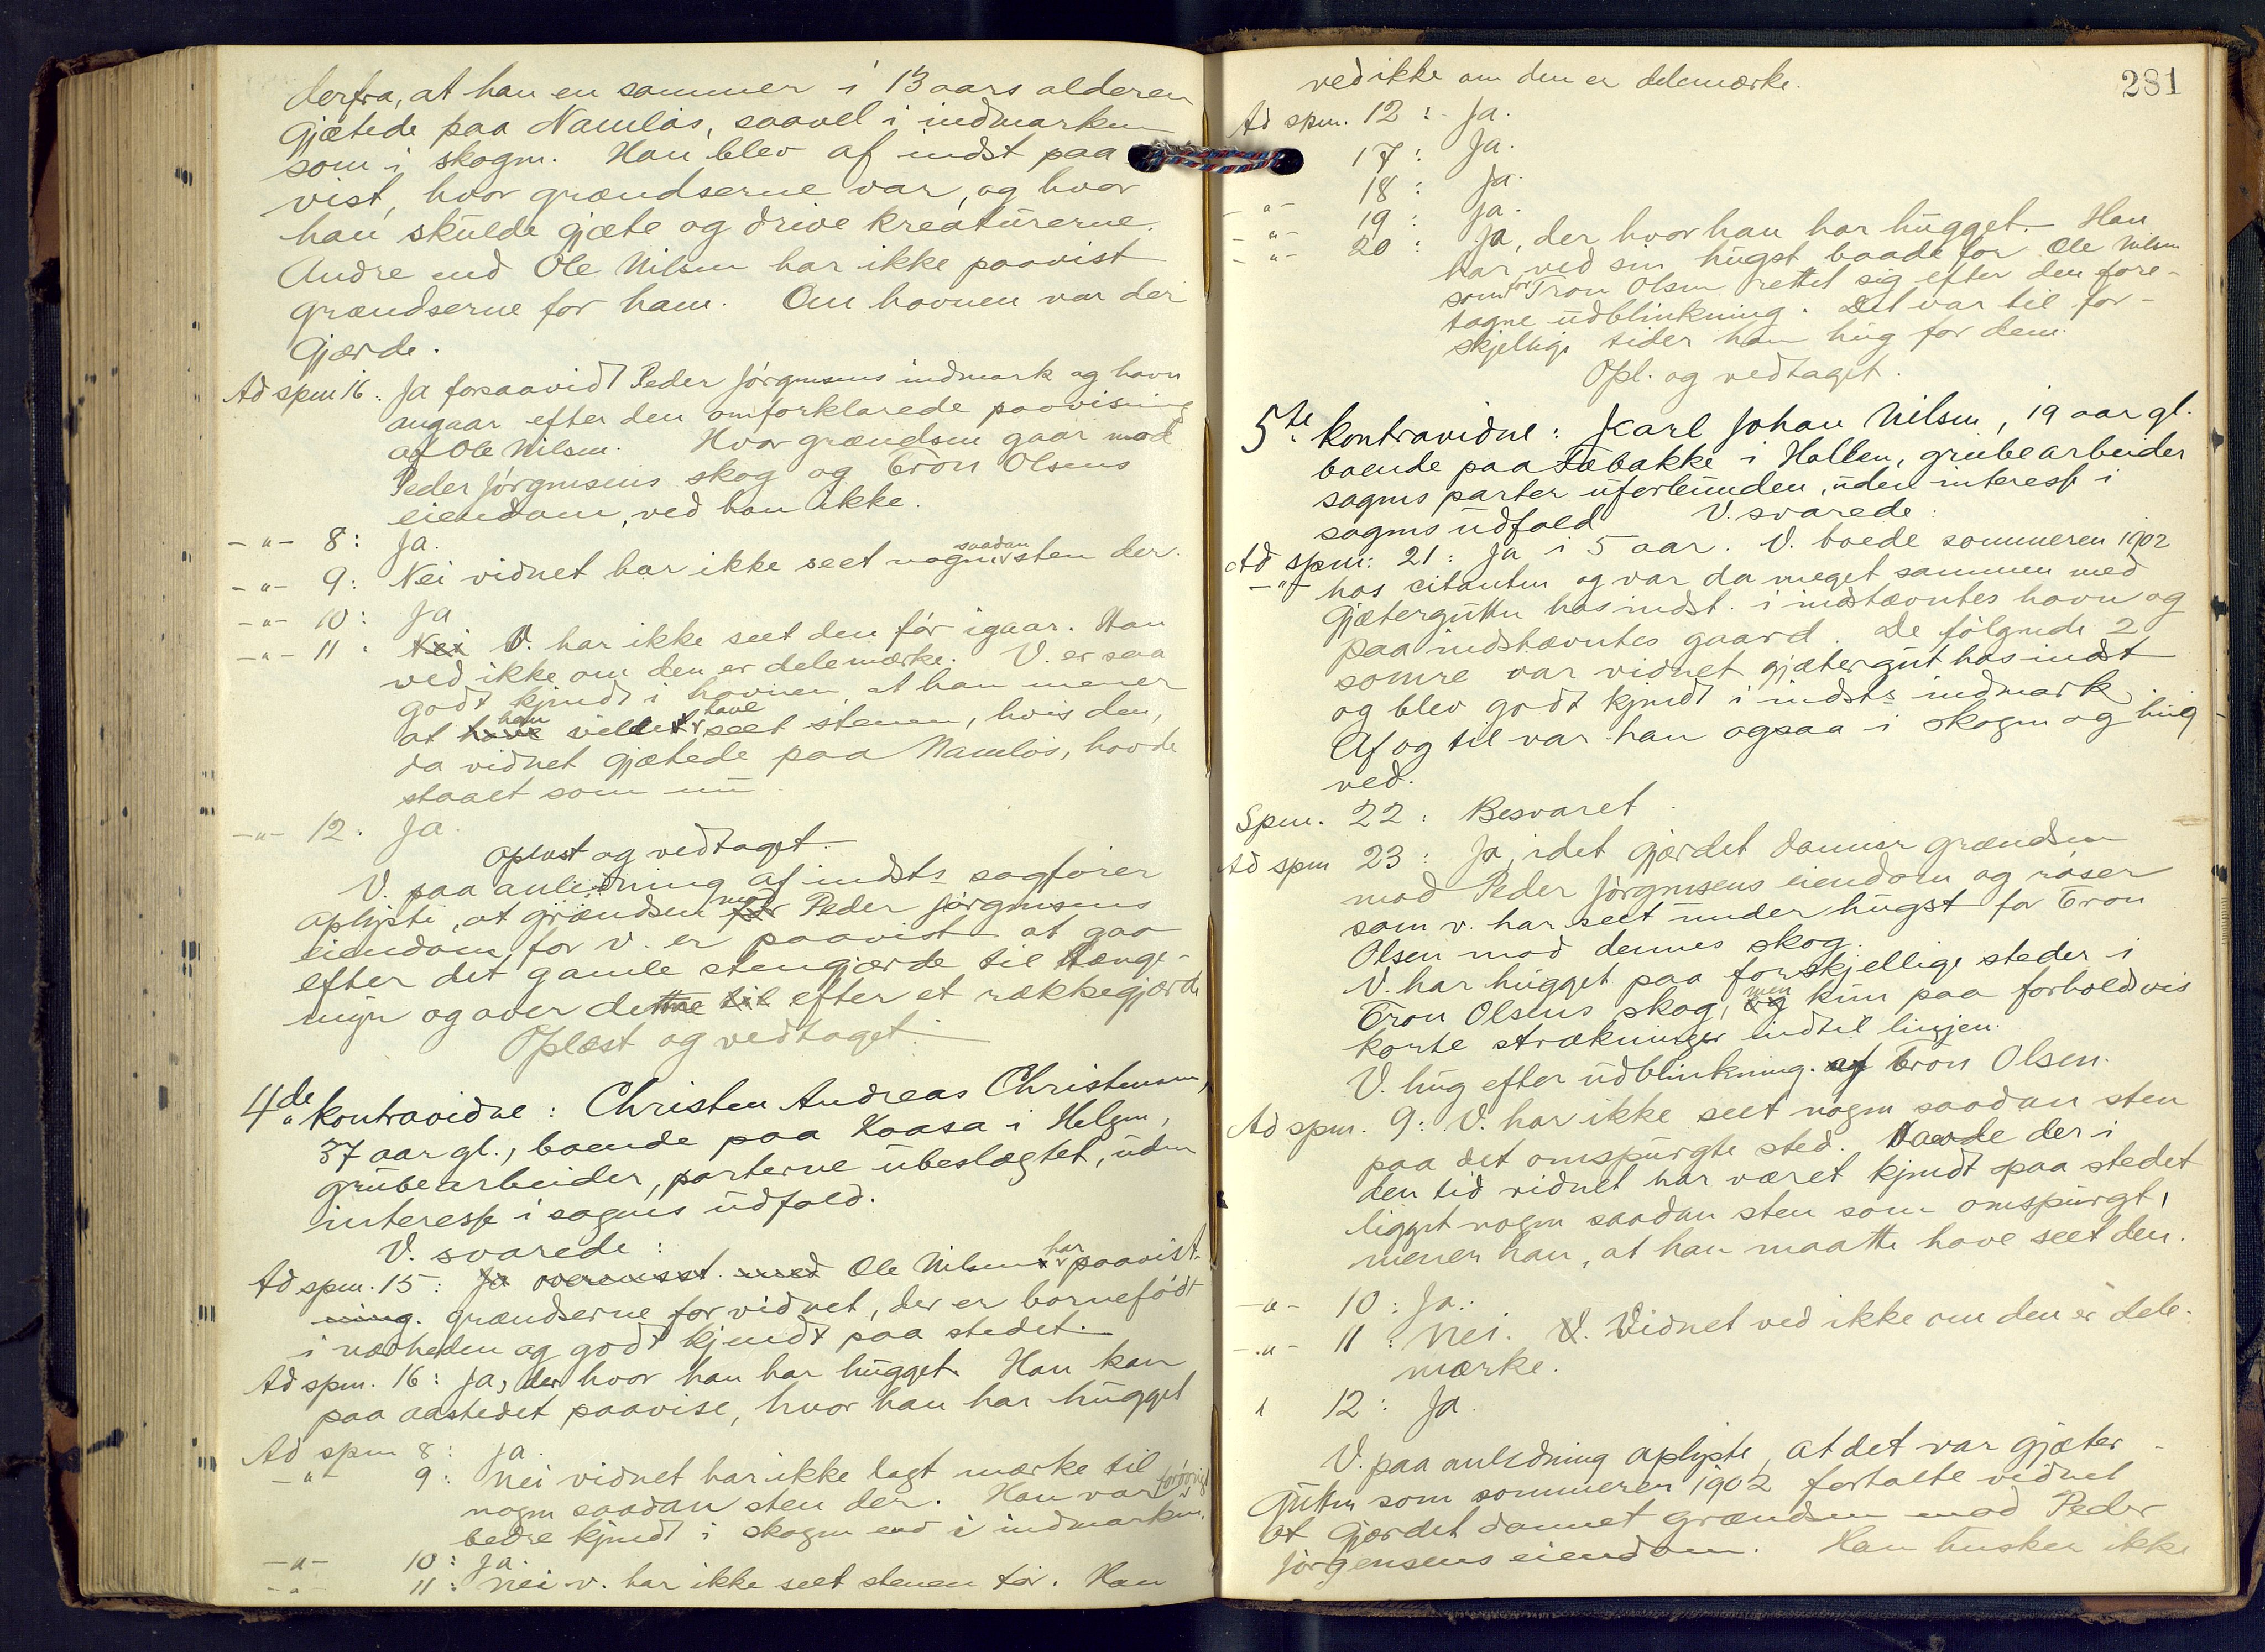 derfra, at han en sommer i 13 aars alderen
gjætede paa Namløs, saavel i indmarken
som i skogen. Han blev af indst paa-
vist, hvor grændserne var, og hvor
han skulde gjæte og drive kreaturerne.
Andre end Ole Nilsen har ikke paavist
grændserne for ham. Om havnen var der
gjærde.
Ad spm 16: Ja forsaavidt Peder Jørgensens indmark og havn
angaar efter den omforklarede paavisning
af Ole Nilsen. Hvor grændsen gaar mod
Peder Jørgensens skog og Tron Olsens
eiendom, ved han ikke.
-"- 8: Ja.
-"- 9: Nei vidnet har ikke seet nogen saadan sten der.
-"- 10: Ja
-"- 11: Nei V. har ikke seet den før igaar. Han
ved ikke om den er delemærke. V. er saa
godt kjendt i havnen, at han mener
at have han villet have seet stenen, hvis den,
da vidnet gjætede paa Namløs, havde
staaet som nu.
-"- 12. Ja.
Oplæst og vedtaget.
V. paa anledning af indsts sagfører
oplyste, at grændsen for mod Peder Jørgensens
eiendom, for v. er paavist at gaa
efter det gamle stengjærde til Hænge-
myr og over denne til efter et rækkegjærde
Oplæst og vedtaget.
4de kontravidne: Christen Andreas Christensen,
37 aar gl., boende paa Kaasa i Helgen,
grubearbeider, parterne ubeslægtet, uden
interesse i sagens udfald.
V. svarede:
Ad spm. 15: Ja overensst. med Ole Nilsens har paavist
ning. grændserne for vidnet, der er barnefødt
i nærheden og godt kjendt paa stedet.
Ad spm. 16: Ja, der hvor han har hugget. Han kan
paa aastedet paavise, hvor han har hugget
Ad spm 8: Ja.
-"- 9: Nei vidnet har ikke lagt mærke til
nogen saadan sten der. Han var forøvrigt
bedre kjendt i skogen end i indmarken.
-"- 10: Ja.
-"- 11: Nei v. har ikke seet stenen før. Han
281
ved ikke om den er delemærke.
Ad spm. 12: Ja.
17: Ja.
18: Ja.
-"- 19: Ja.
-"- 20: Ja, der hvor han har hugget. Han
har ved sin hugst baade for Ole Nilsen
som for Tron Olsen rettet sig efter den fore-
tagne udblinkning. Det var til for-
skjellige tider han hug for dem.
Opl. og vedtaget.
5te kontravidne: Karl Johan Nilsen, 19 aar gl.
boende paa Tæbakke i Hollen, grubearbeider
sagens parter uforbunden, uden interesse i
sagens udfald V. svarede:
Ad spm: 21: Ja i 5 aar. V. boede sommeren 1902
-"- hos citanten og var da meget sammen med
gjætergutten hos indst. i indstævntes havn og
paa indstævntes gaard. De følgende 2
somre var vidnet gjætergut hos indst
og blev godt kjendt i indsts indmark
Af og til var han ogsaa i skogen og hug
ved.
Spm. 22: Besvaret.
Ad spm 23: Ja, idet gjærdet danner grændsen
mod Peder Jørgensens eiendom og røser
som v. har seet under hugst for Tron
Olsen mod dennes skog.
V. har hugget paa forskjellige steder i
Tron Olsens skog, og men kun paa forholdsvis
korte strækninger indtil linjen.
V. hug efter udblinkning. af Tron Olsen.
Ad spm. 9: V. har ikke seet nogen saadan sten
paa det omspurgte sted. Havde der i
den tid vidnet har været kjendt paa stedet
ligget nogen saadan sten som omspurgt,
mener han, at han maatte have seet den.
-"- 10: Ja.
-"- 11: Nei. V. Vidnet ved ikke om den er dele-
mærke.
" 12: Ja.
V. paa anledning oplyste, at det var gjæter-
gutten som sommeren 1902 fortalte vidnet
at gjærdet dannet grændsen mod Peder
Jørgensens eiendom. Han husker ikke